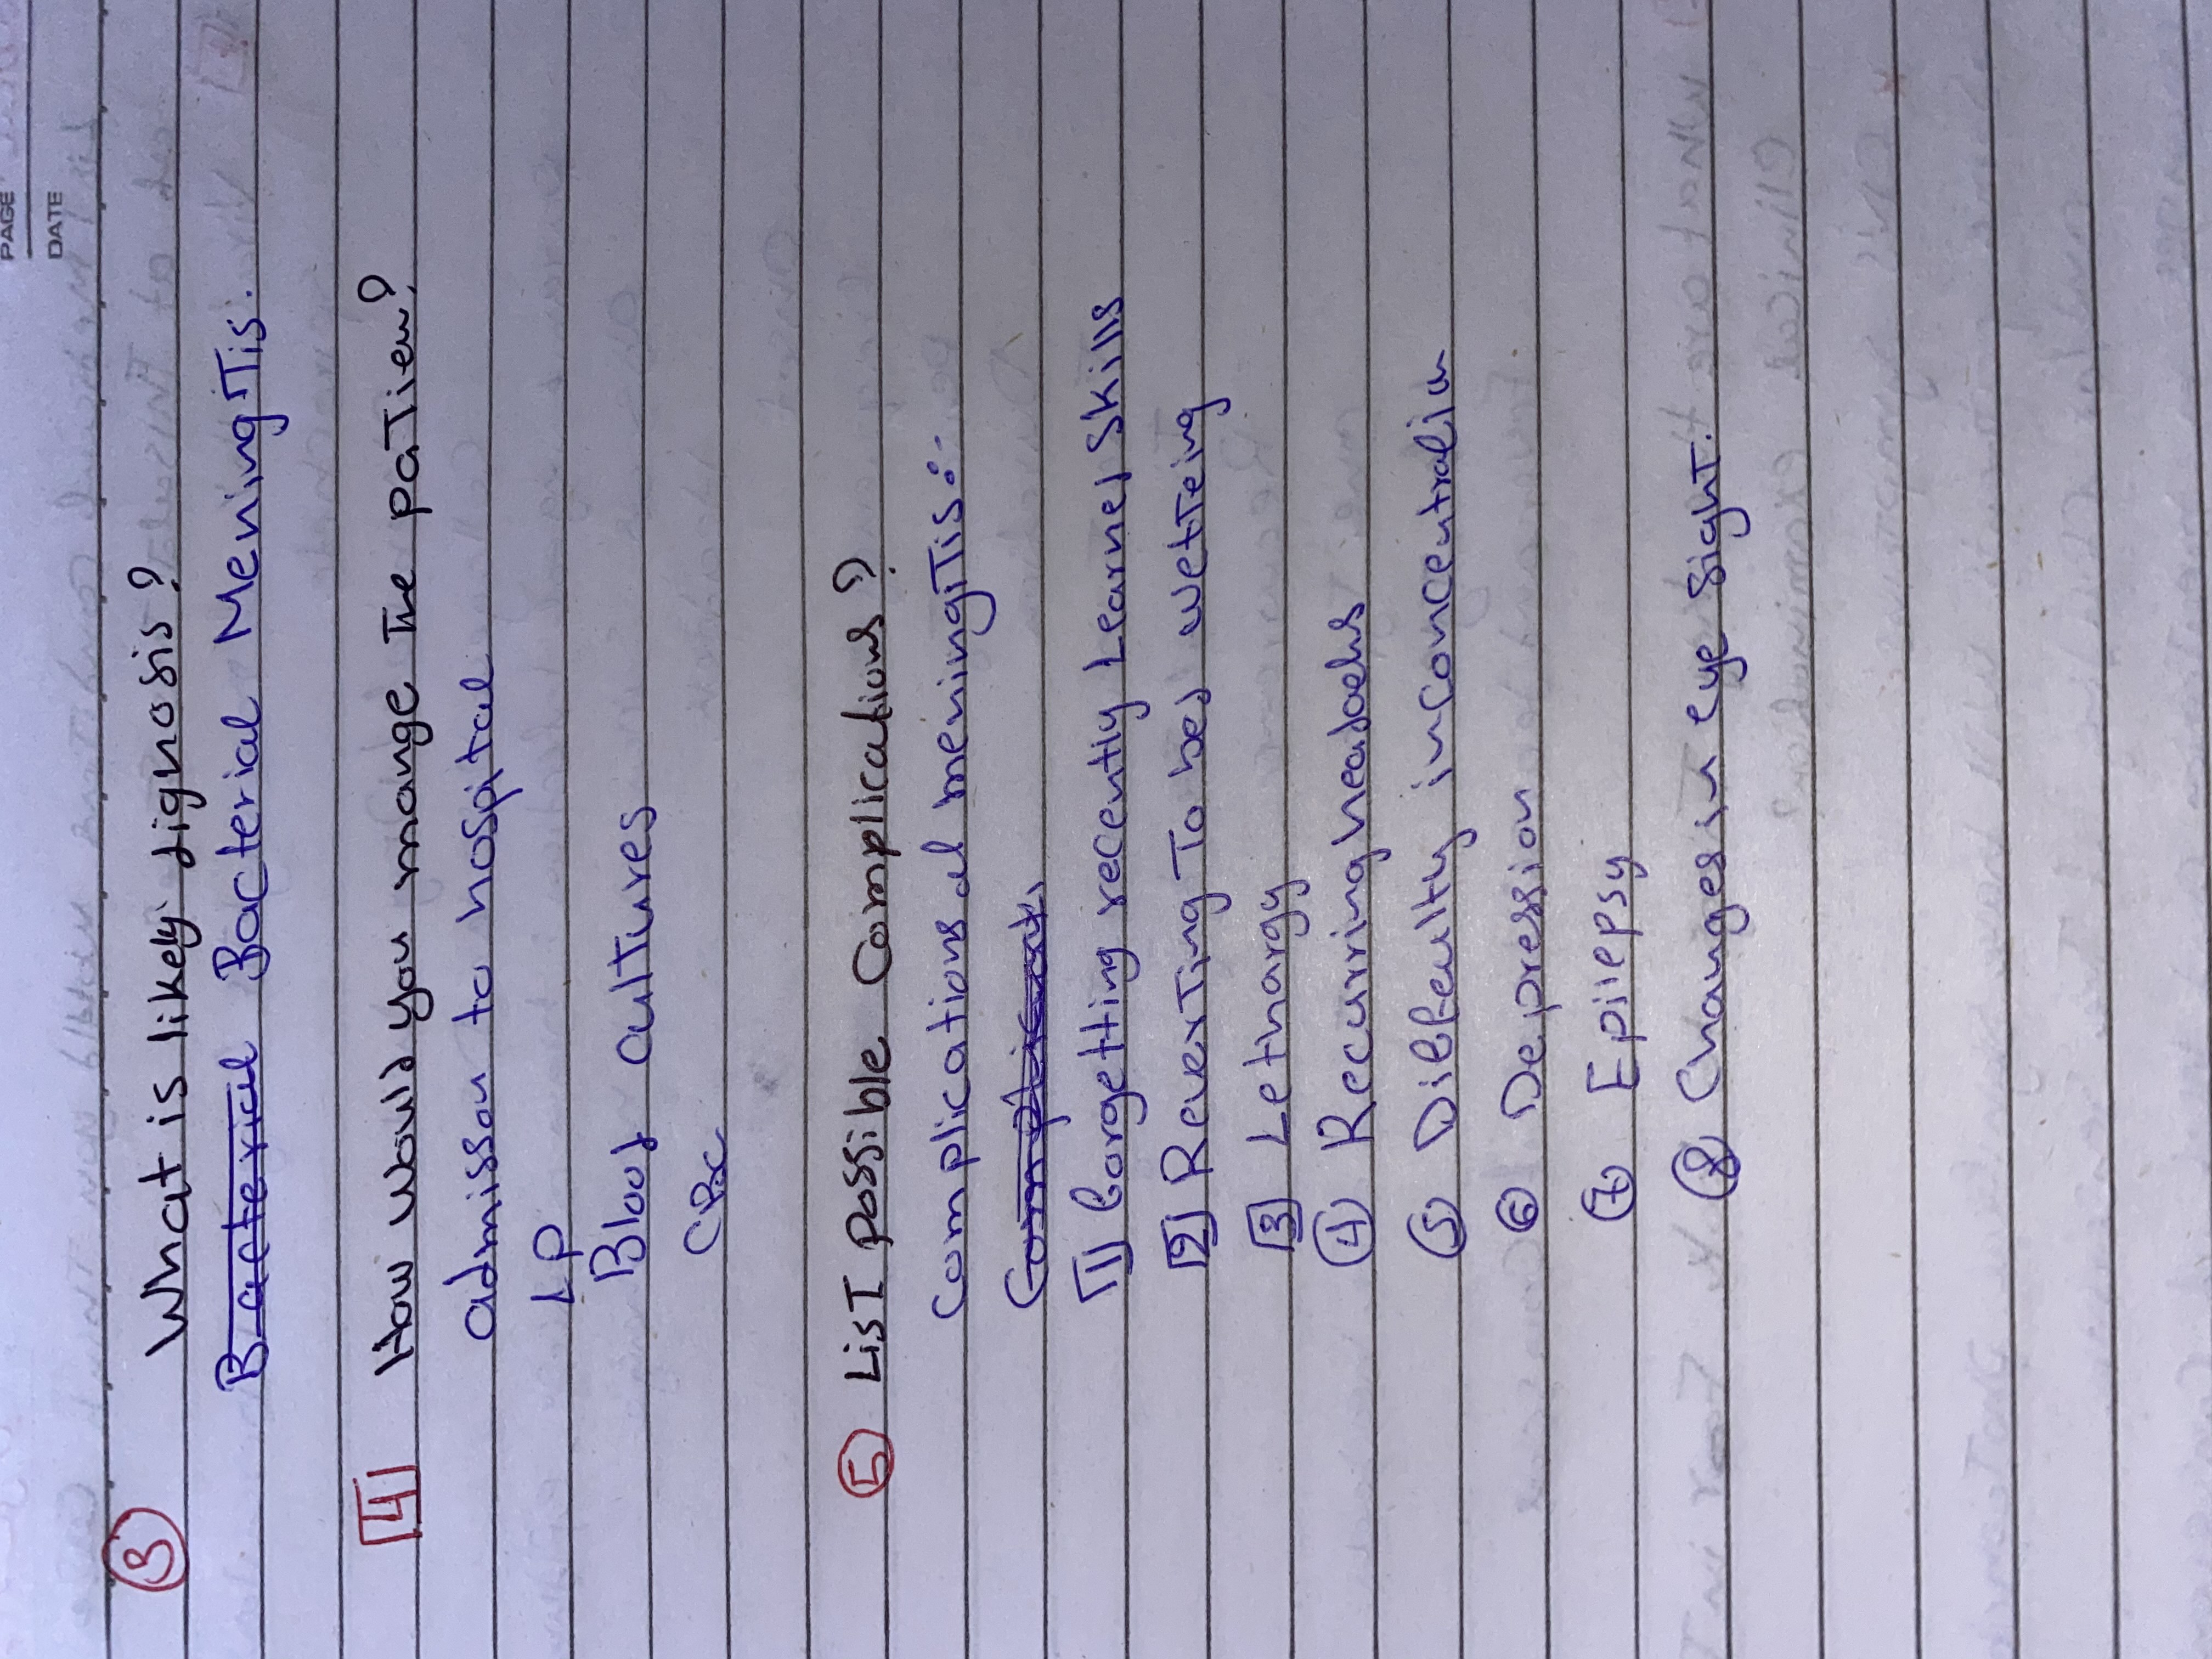 PAGE
DATE
③ What is likely dignosis?
Bacterial Bacterial MeningiTis.
4 How would you mange The paTien?
admisson to hospital
LP
Blood culTures
CBC
⑤ LisT possible Complications?
Complications al meningiTis:-
Complicat
1 Forgetting recently Learned skills
2 ReverTing To bed wetTeing
3 Lethargy
④ Recurring headachs
⑤ Diffculty in concentration
⑥ Depression
⑦ Epilepsy
⑧ Changes in eye sighT.